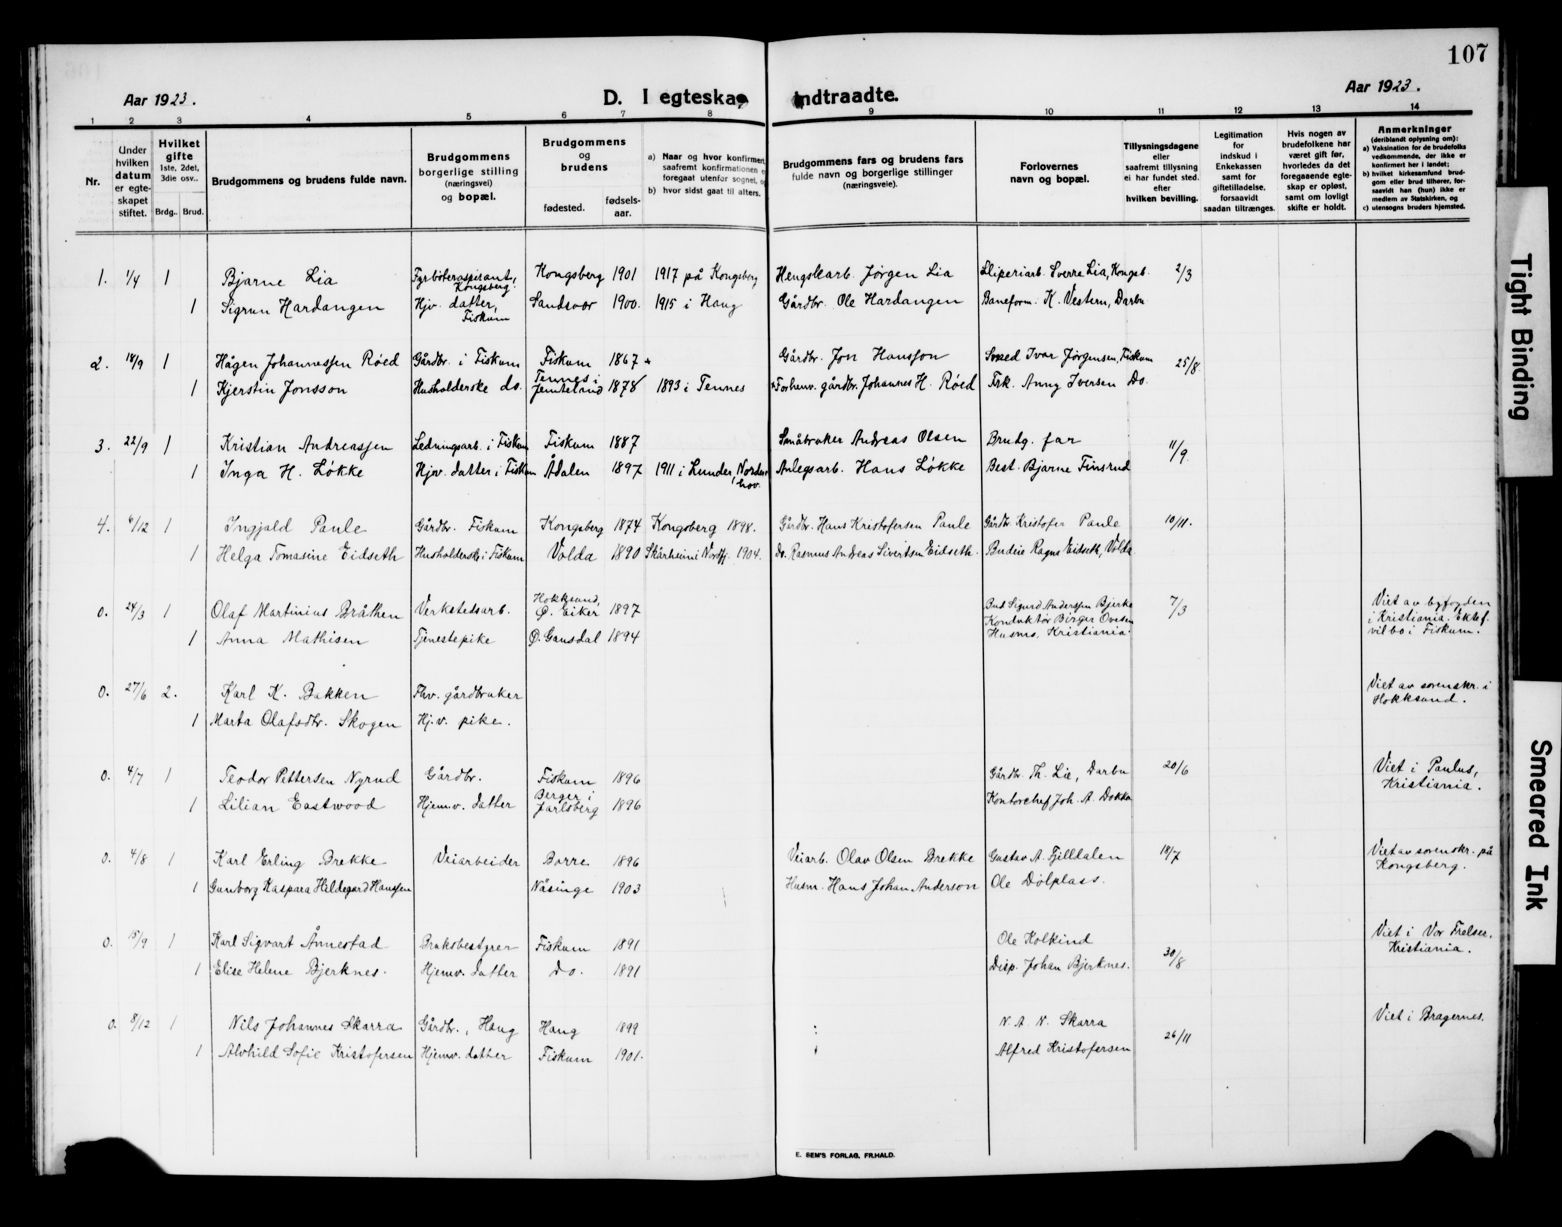 107
Aar 1923.
D. I egteska
indtraadte.
Aar 1923.
1 2 3 4 5 6 7 8 9 10 11 12 13 14
Nr.
Under
hvilken
datum
er egte-
skapet
stiftet.
Hvilket
gifte
1ste, 2del,
3die osv..
Brdg.. Brud.
Brudgommens og brudens fulde navn.
Brudgommens
borgerlige stilling
(næringsvei)
og bopæl.
Brudgommens
og
brudens
fødested.
fødsels-
aar.
a) Naar og hvor konfirmert,
saafremt konfirmationen e
foregaat utenfor sognet, o
b) hvor sidst gaat til alters.
Brudgommens fars og brudens fars
fulde navn og borgerlige stillinger
(næringsveie).
Forlovernes
navn og bopæl.
Tillysningsdagene
eller
saafremt tillysning
ei har fundet sted.
efter
hvilken bevilling.
Legitimation
for
indskud i
Enkekassen
samt for
giftetilladelse,
forsaavidt
saadan tiltrænges.
Hvis nogen av
brudefolkene har
været gift før,
hvorledes da det
foregaaende egte-
skap er opløst,
samt om lovligt
skifte er holdt.
Anmerkninger
(deriblandt oplysning om):
a) Vaksination for de brudefolks
vedkommende, der ikke er
konfirmert her i landet;
b) hvilket kirkesamfund brud-
gom eller brud tilhører, for-
saavidt han (hun) ikke er
medlem av Statskirken, og
c) utensogns bruders hjemsted.
1. 1/4 1 Bjarne Lia Fyrbøteraspirant, Kongsberg Kongsberg 1901 1917 på Kongsberg Hengslearb. Jørgen Lia Sliperiarb. Sverre Lia, Kongsb. 2/3
1 Sigrun Hardangen Hjv. datter, Fiskum Sandsvær 1900. 1915 i Haug Gårdbr. Ole Hardangen Baneform. K. Vestern, Darbu
2. 14/9 1 Hågen Johannessen Røed Gårdbr. i Fiskum Fiskum 1867 * Gårdbr. Jon Hansson Smed Ivar Jørgensen, Fiskum 25/8
1 Kjerstin Jonsson Husholderske do. Tennes i Jemteland 1878 1893 i Tennes *Forhenv. gårdbr. Johannes H. Røed Frk. Anny Iversen Do.
3. 22/9 1 Kristian Andreassen Ledningsarb. i Fiskum Fiskum 1887 Småbruker Andreas Olsen Brudg. far 11/9
1 Inga H. Løkke Hjv. datter i Fiskum Ådalen 1897 1911 i Lunder, Norderhov. Anlegsarb. Hans Løkke Best. Bjarne Finsrud
4. 6/12 1 Ingjald Paule Gårdbr. Fiskum Kongsberg 1874 Kongsberg 1898. Gårdbr. Hans Kristofersen Paule Gårdbr Kristofer Paule 10/11.
1 Helga Tomasine Eidseth Husholderske i Fiskum Volda 1890 Skårheim i Nordfj. 1904. Do. Rasmus Andreas Sivertsen Eidseth. Budeie Ragna Eidseth, Volda
0. 24/3 1 Olaf Martinius Bråthen Verkstedsarb. Hokksund, Ø. Eiker 1897 Bud Sigurd Anderssen Bjerke 7/3 Viet av byfogden
1 Anna Mathisen Tjenestepike Ø. Gausdal 1894 Konduktør Birger Ovesen Husnes, Kristiania. i Kristiania. Ektef. vil bo i Fiskum.
0. 27/6 2. Karl K. Bakken Fhv. gårdbruker Viet av sorenskr. i
1 Marta Olafsdtr. Skogen Hj.v. pike. Hokksund.
0. 4/7 1 Teodor Pettersen Nyrud Gårdbr. Fiskum 1896 Gårdbr. Th. Lie, Darbu 20/6 Viet i Paulus,
1 Lilian Eastwood Hjemv. datter Berger i Jarlsberg 1896 Kontorchef Joh. A. Dokka Kristiania.
0. 4/8 1 Karl Erling Brekke Veiarbeider Borre 1896 Veiarb. Olav Olsen Brekke Gustav A. Fjelldalen 18/7 Viet av sorenskr. på
1 Gunborg Kaspara Hildegard Hanssen Nåsinge 1903 Husm. Hans Johan Anderson Ole Dølplass. Kongsberg.
0. 15/9 1 Karl Sigvart Ånnestad Bruksbestyrer Fiskum 1891 Ole Kolkind Viet i Vor Frelser,
1 Elise Helene Bjerknes. Hjemv. datter Do. 1891 Disp. Johan Bjerknes. 30/8 Kristiania.
0. 8/12 1 Nils Johannes Skarra Gårdbr., Haug Haug 1899 N. A. N. Skarra 26/11 Viet i Bragernes.
1 Alvhild Sofie Kristofersen Hjemv. datter Fiskum 1901. Alfred Kristofersen
E. SEM'S FORLAG, FR.HALD.
Tight Binding
Smeared Ink